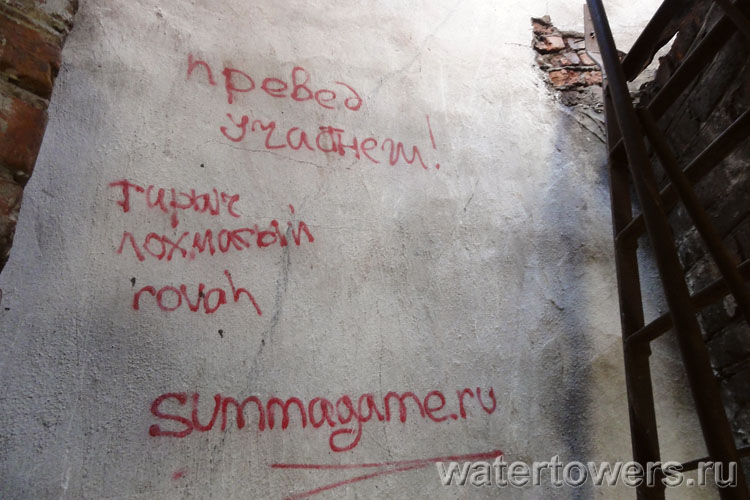 превед
учаснег!
гирыч
лохматый
rovah
summagame.ru
watertowers.ru